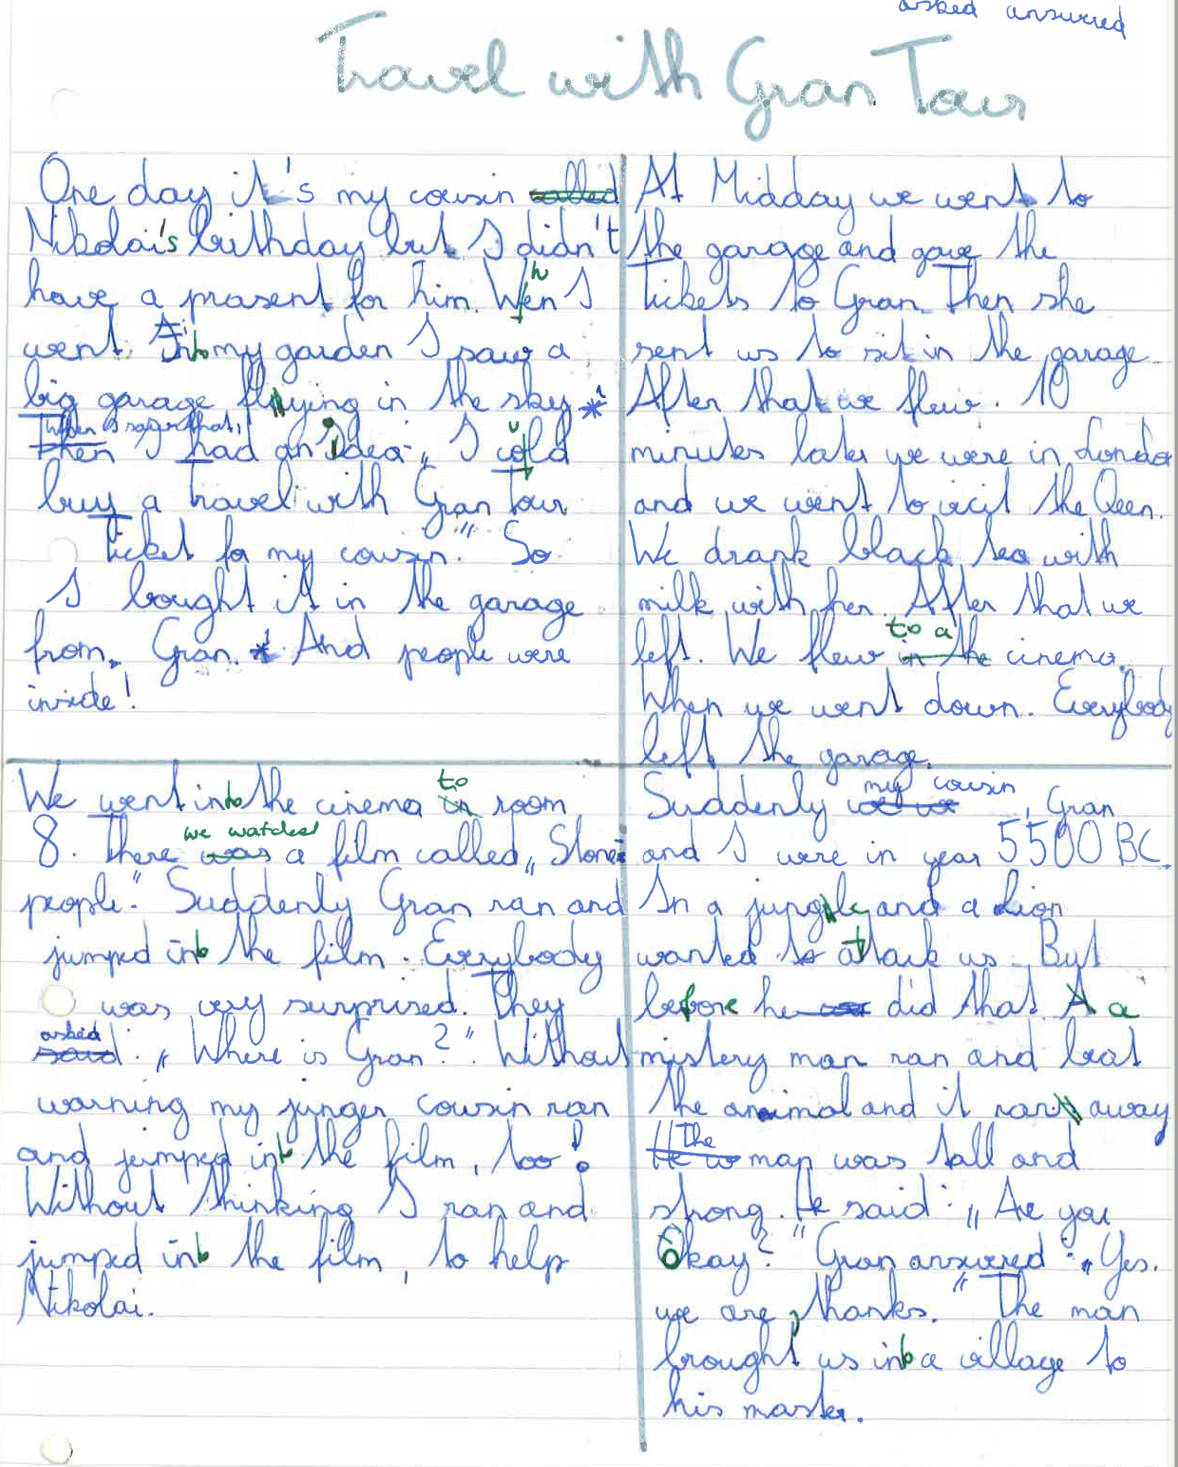 asked answered
Travel with Gran Tour
One day it's my cousin called
Nikolai's birthday but I didn't
have a prasent for him. When I
went into my garden I saw a
big garage flying in the sky *1
Then I saw that,
Then I had an idea „ I could
buy a travel with Gran Tour
ticket for my cousin." So
I bought it in the garage
from Gran. *1 And people were
inside!
At Midday we went to
the garage and gave the
tickets to Gran. Then she
sent us to sit in the garage.
After that we flew. 10
minutes later we were in London
and we went to vicit the Qeen.
We drank black tea with
milk with her. After that we
to a
left. We flew in the cinema.
When we went down. Everybody
left the garage.
We went into the cinema to in room
we watched
8. There was a film called „Stone
people." Suddenly Gran ran and
jumped into the film. Everybody
was very surprised. They
asked
said: „Where is Gran?". Without
warning my junger cousin ran
and jumped into the film, too!
Without thinking I ran and
jumped into the film, to help
Nikolai.
my cousin
Suddenly , Gran
and I were in year 5500 BC.
In a jungle and a Lion
wanted to attack us. But
before he did that A a
mistery man ran and beat
the animal and it ran away
the
He w man was tall and
strong. He said: „Are you
Okay?" Gran answered: „Yes.
we are, thanks." The man
brought us into a village to
his master.